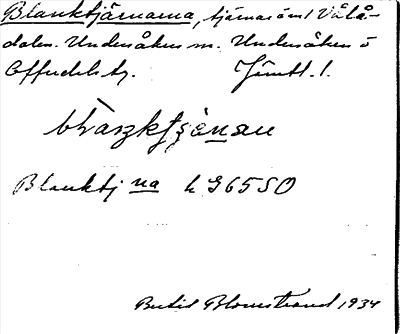 Blanktjärnarna, tjärnar öm/ Vålå-
dalen. Undersåkers sn. Undersåkers o
Offerdals tg. Jämtl. l.
Blanktj na k G65SO
Bertil Blomstrand 1934